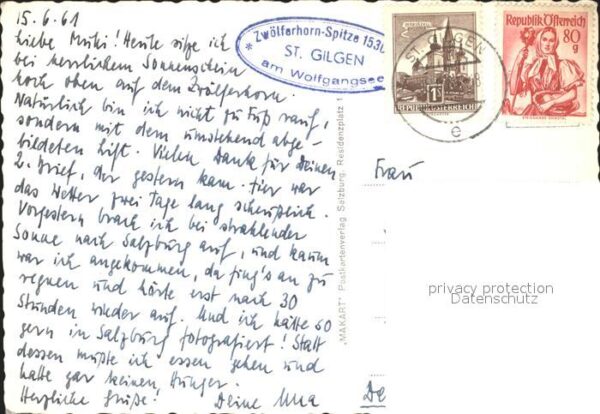 15.6.61
Liebe Muki! Heute sitze ich
bei herrlichem Sonnenschein
hoch oben auf dem Zwölferhorn.
Natürlich bin ich nicht zu Fuß rauf,
sondern mit dem umstehend abge-
bildeten Lift. Vielen Dank für Deinen
2. Brief, der gestern kam. Hier war
das Wetter zwei Tage lang scheußlich.
Vorgestern brach ich bei strahlender
Sonne nach Salzburg auf, und kaum
war ich angekommen, da fing's an zu
regnen und hörte erst nach 30
Stunden wieder auf. Und ich hätte so
gern in Salzburg fotografiert! Statt
dessen mußte ich essen gehen und
hatte gar keinen Hunger.
Herzliche Grüße! Deine
Zwölferhorn-Spitze 1530
ST. GILGEN
am Wolfgangsee
ST. GILGEN
e
1S
REPUBLIK ÖSTERREICH
Republik Österreich
80
g
"MAKART" Postkartenverlag Salzburg, Residenzplatz 1
Frau
privacy protection
Datenschutz